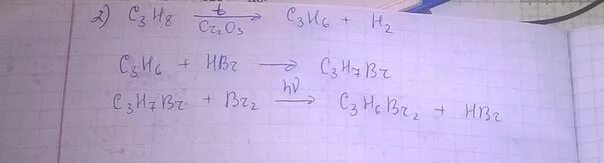 2) C₃H₈ —t/Cr₂O₃→ C₃H₆ + H₂
C₃H₆ + HBr → C₃H₇Br
C₃H₇Br + Br₂ —hν→ C₃H₆Br₂ + HBr